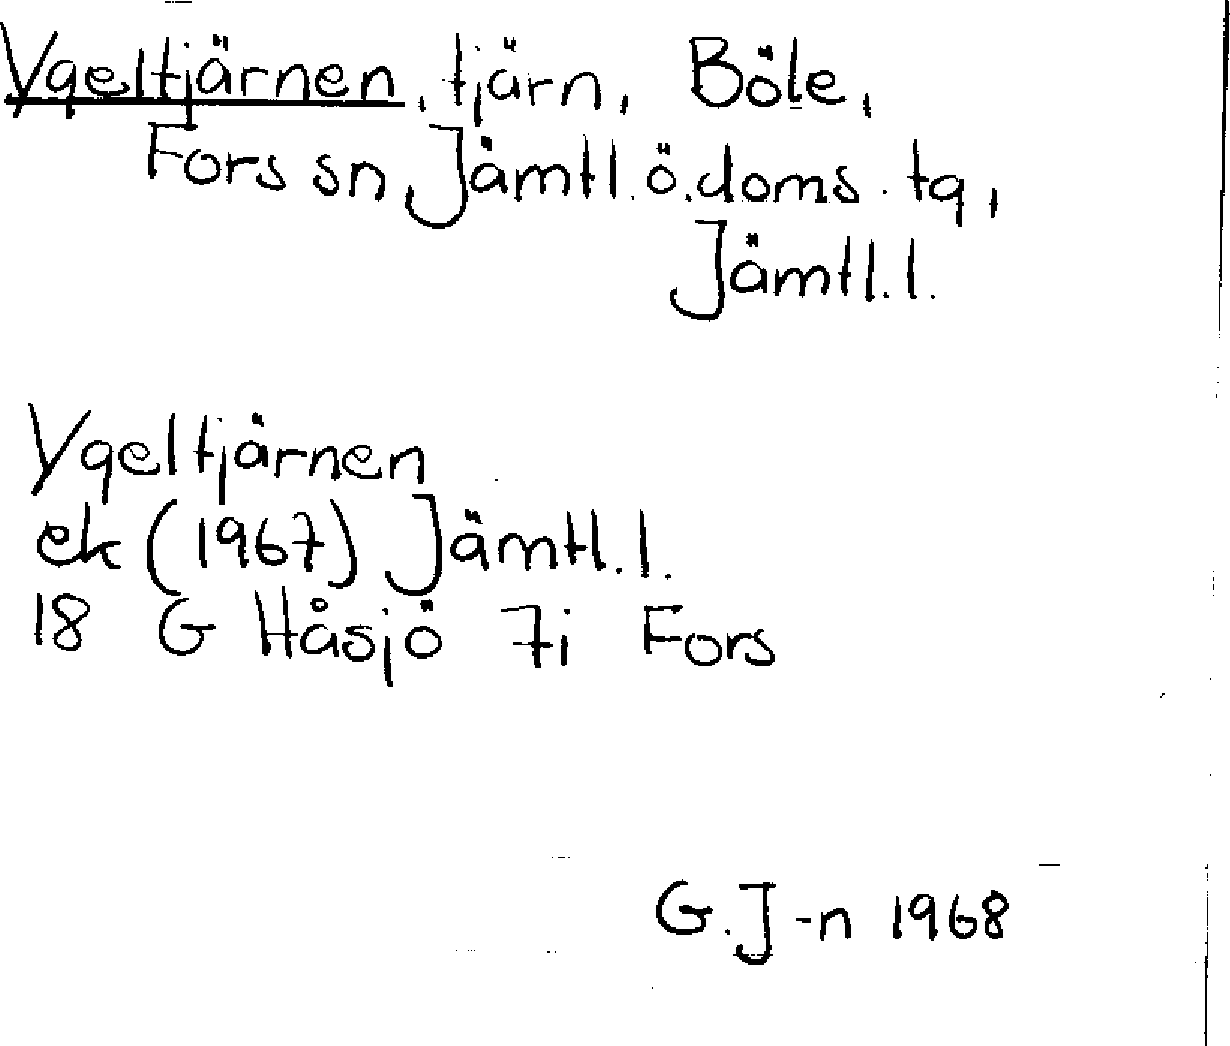 Ygeltjärnen, tjärn, Böle,
Fors sn, Jämtl. ö. doms. tg,
Jämtl. l.
Ygeltjärnen
ek (1967) Jämtl. l.
18 G Håsjö 7i Fors
G. J-n 1968